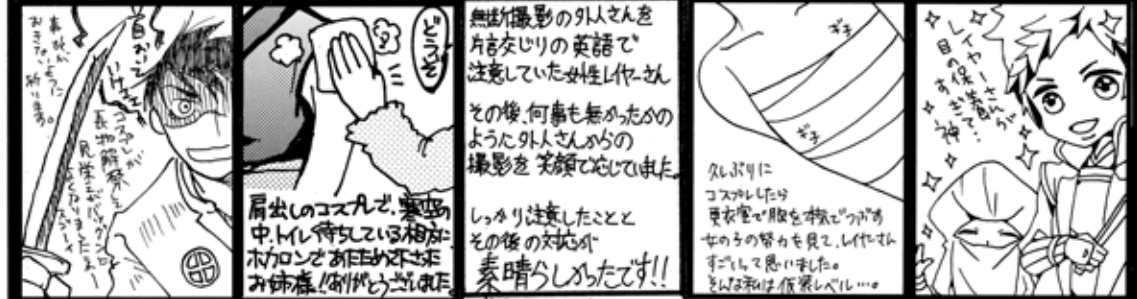 事故が
おきないように
祈ります。
コスプレが
長物解禁して
どうぞ
肩出しのコスプレで、寒空の
中、トイレ待ちしている相方に
ホカロンであたためて下さった
お姉様!ありがとうございました。
無断撮影の外人さんを
片言交じりの英語で
注意していた女性レイヤーさん
その後、何事も無かったかの
ように外人さんからの
撮影を笑顔で応じていました。
しっかり注意したことと
その後の対応が
素晴らしかったです!!
ギチ
ギチ
久しぶりに
コスプレしたら
更衣室で胸を本気でつぶす
女の子の努力を見て、レイヤーさん
すごいって思いました。
そんな私は仮装レベル…。
レイヤーさんが
目の保養
すぎて…
神